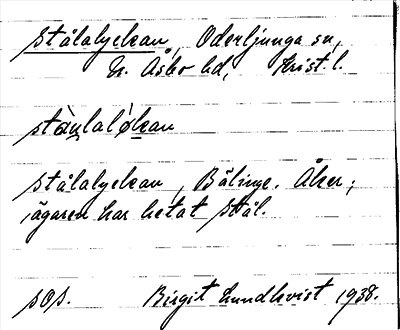 Stålalyckan, Oderljunga sn,
N. Åsbo hd, Krist. l.
stålalyckan, Bälinge. Åker;
ägaren har hetat Stål.
sOs. Birgit Lundkvist 1938.